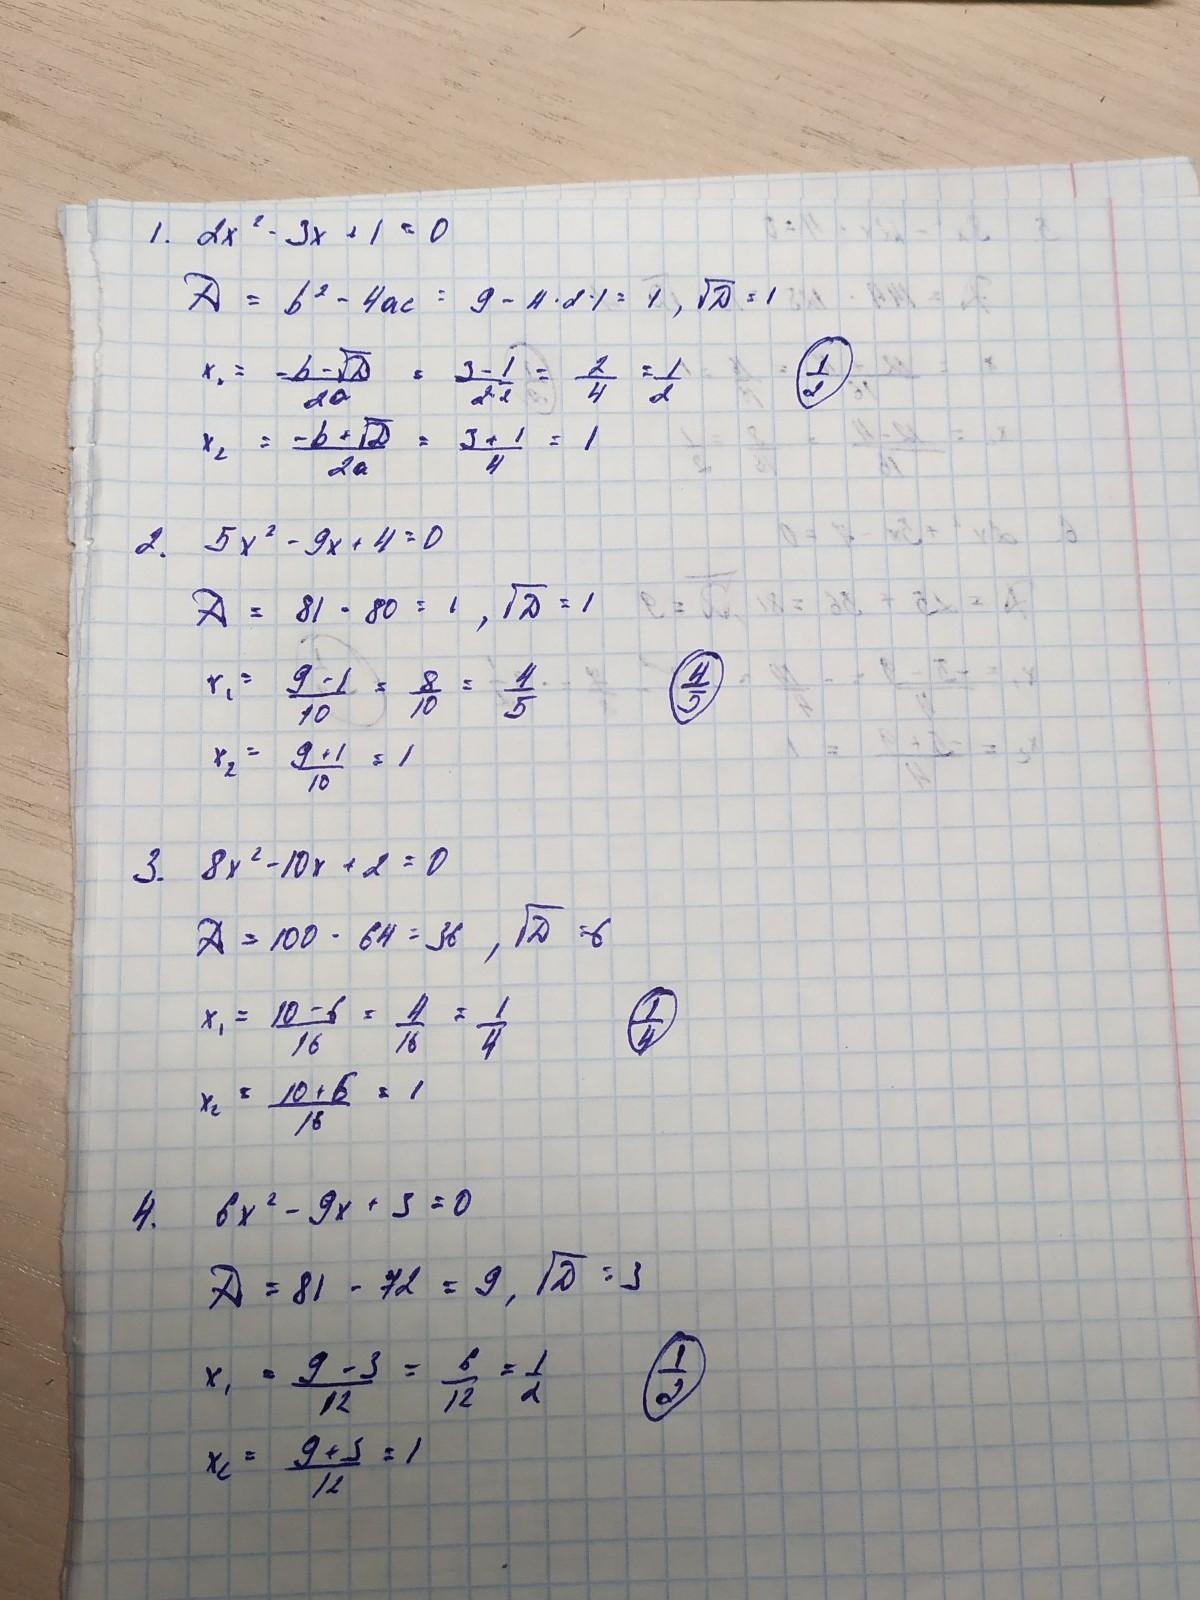 1. 2x² - 3x + 1 = 0
D = b² - 4ac = 9 - 4·2·1 = 1, √D = 1
x₁ = (-b-√D)/2a = (3-1)/2·2 = 2/4 = 1/2 1/2
x₂ = (-b+√D)/2a = (3+1)/4 = 1
2. 5x² - 9x + 4 = 0
D = 81 - 80 = 1, √D = 1
x₁ = (9-1)/10 = 8/10 = 4/5 4/5
x₂ = (9+1)/10 = 1
3. 8x² - 10x + 2 = 0
D = 100 - 64 = 36, √D = 6
x₁ = (10-6)/16 = 4/16 = 1/4 1/4
x₂ = (10+6)/16 = 1
4. 6x² - 9x + 3 = 0
D = 81 - 72 = 9, √D = 3
x₁ = (9-3)/12 = 6/12 = 1/2 1/2
x₂ = (9+3)/12 = 1